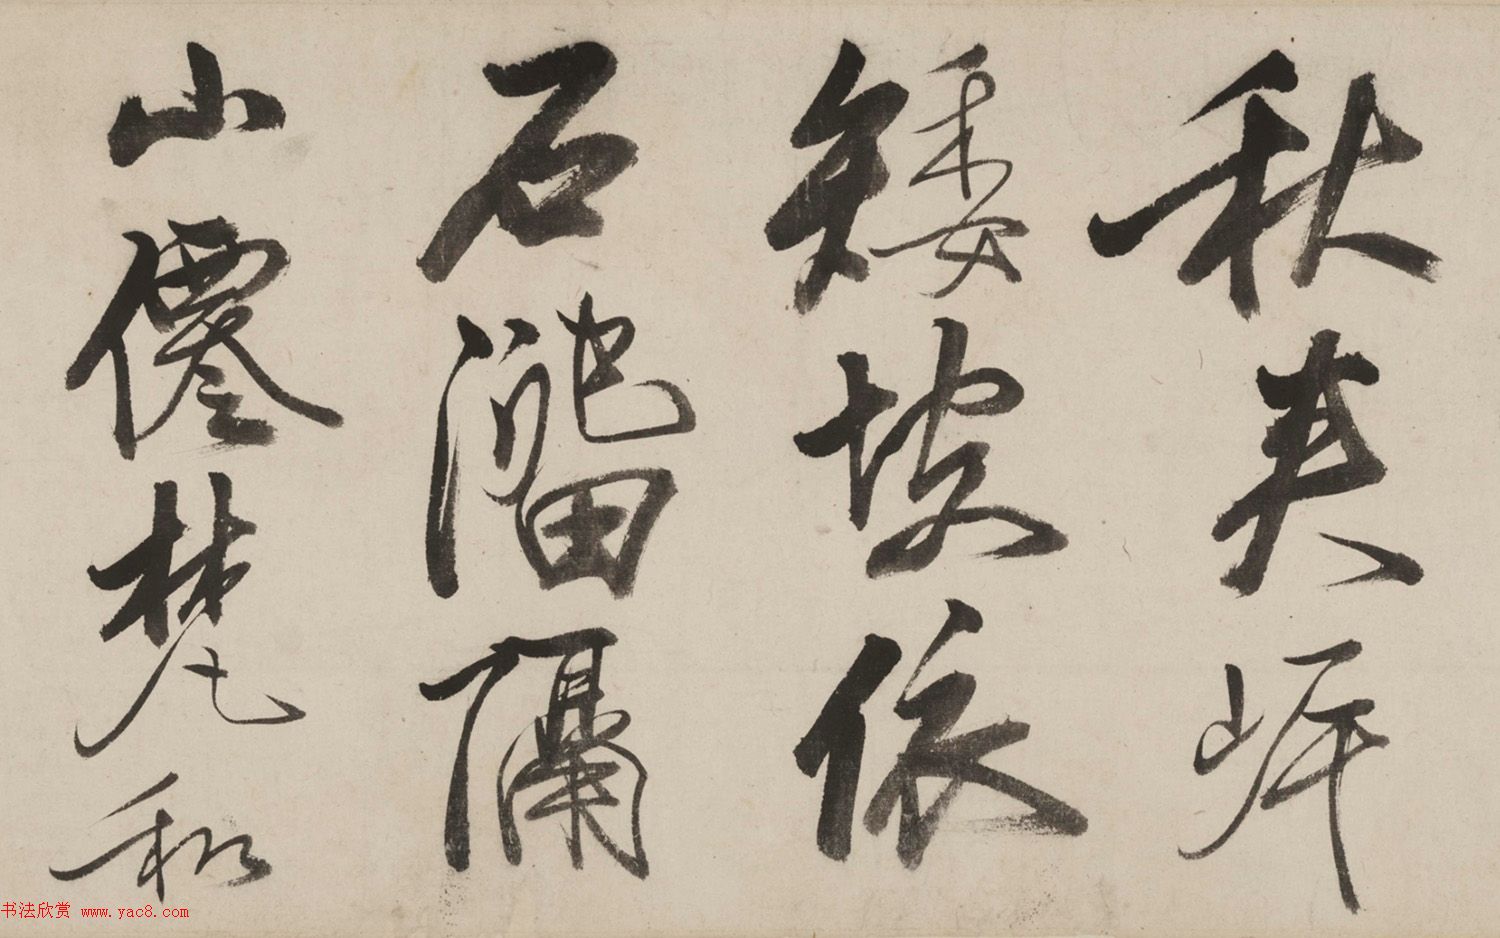 秋英岸
矮坡依
石溜隔
山僊梵和
书法欣赏 www.yac8.com